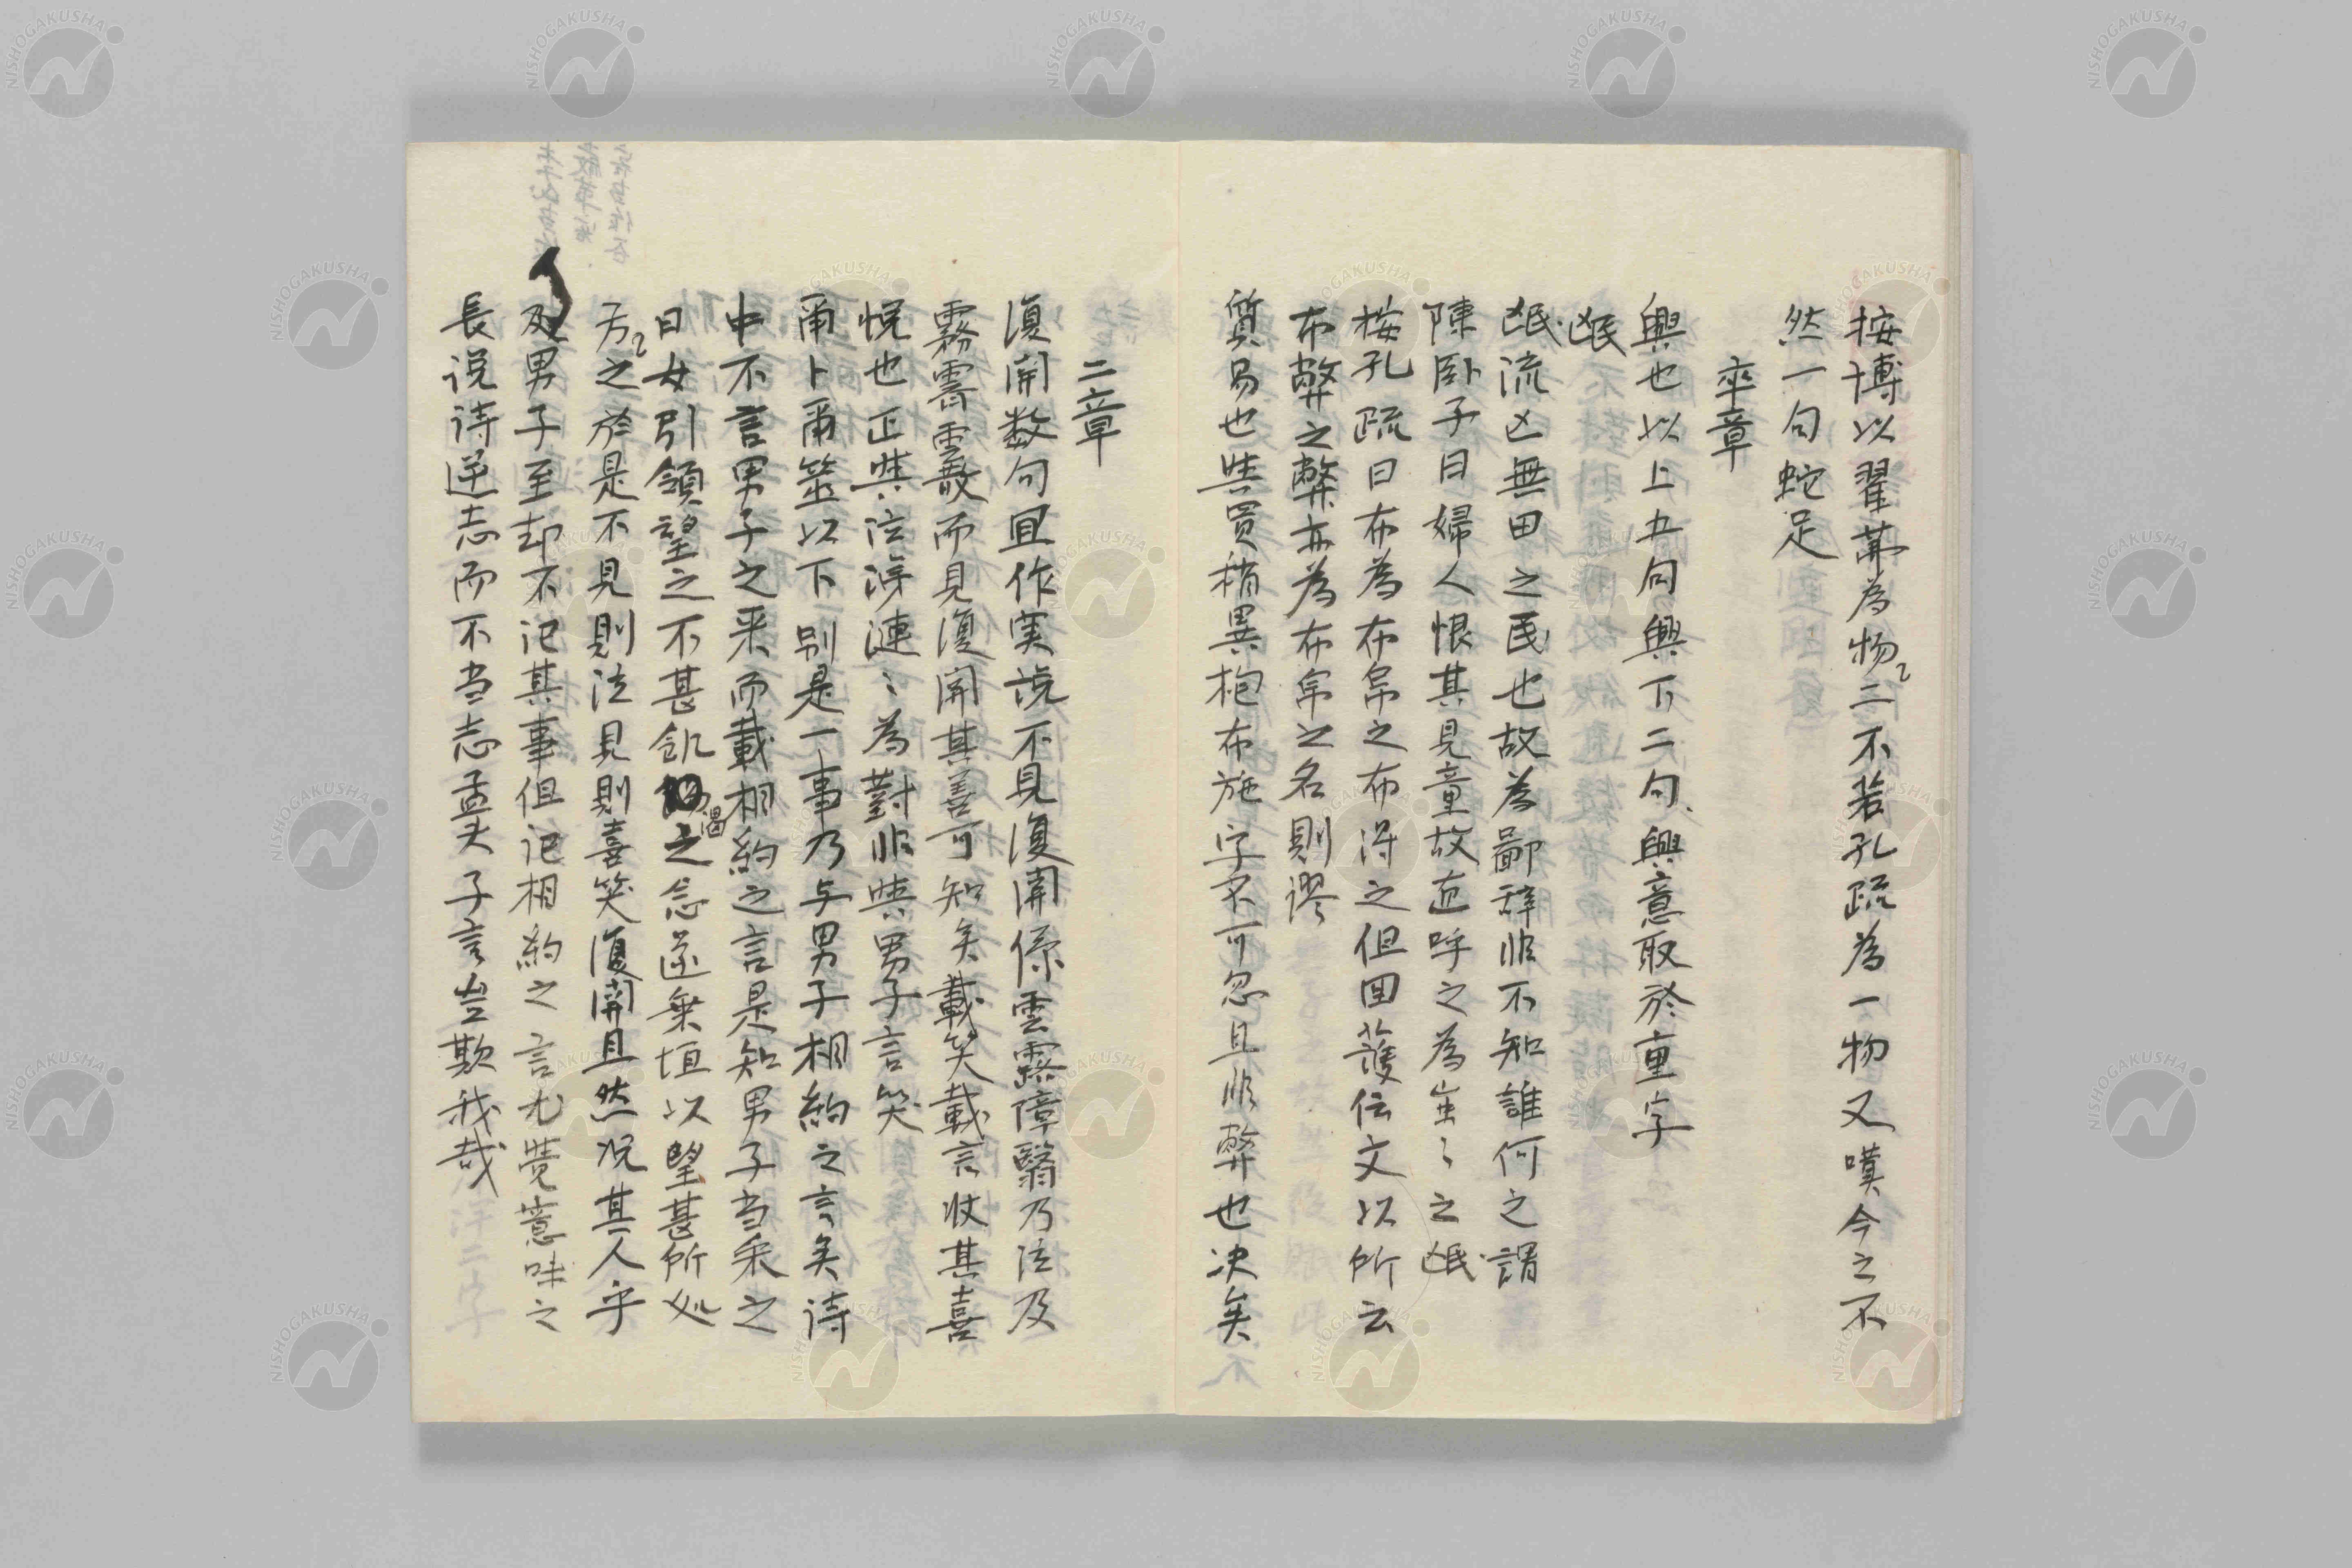 按博以翟茀為物〻二不若孔疏為一物又嘆今之不
然一句蛇足
卒章
興也以上五句興下二句興意取於重字
氓
氓流亡無田之民也故為鄙辞非不知誰何之謂
陳臥子曰婦人恨其見棄故追呼之為蚩〻之氓
按孔疏曰布為布帛之布得之但回護伝文以所云
布幣之幣亦為布帛之名則謬
貿易也与買稍異抱布施字不可忽且非幣也決矣
二章
復関数句且作実説不見復関係雲霧障翳乃泣及
霧霽雲散而見復関其喜可知矣載笑載言状其喜
悦也正与泣涕漣〻為對非与男子言笑
爾卜爾筮以下別是一事乃与男子相約之言矣詩
中不言男子之来而載相約之言是知男子当来之
日女引領望之不甚飢渇之念遂乗垣以望其所処
方〻之於是不見則泣見則喜笑復関且然况其人乎
及男子至却不記其事但記相約之言尤覚意味之
長説詩逆志而不当志孟夫子言豈欺我哉
NISHOGAKUSHA